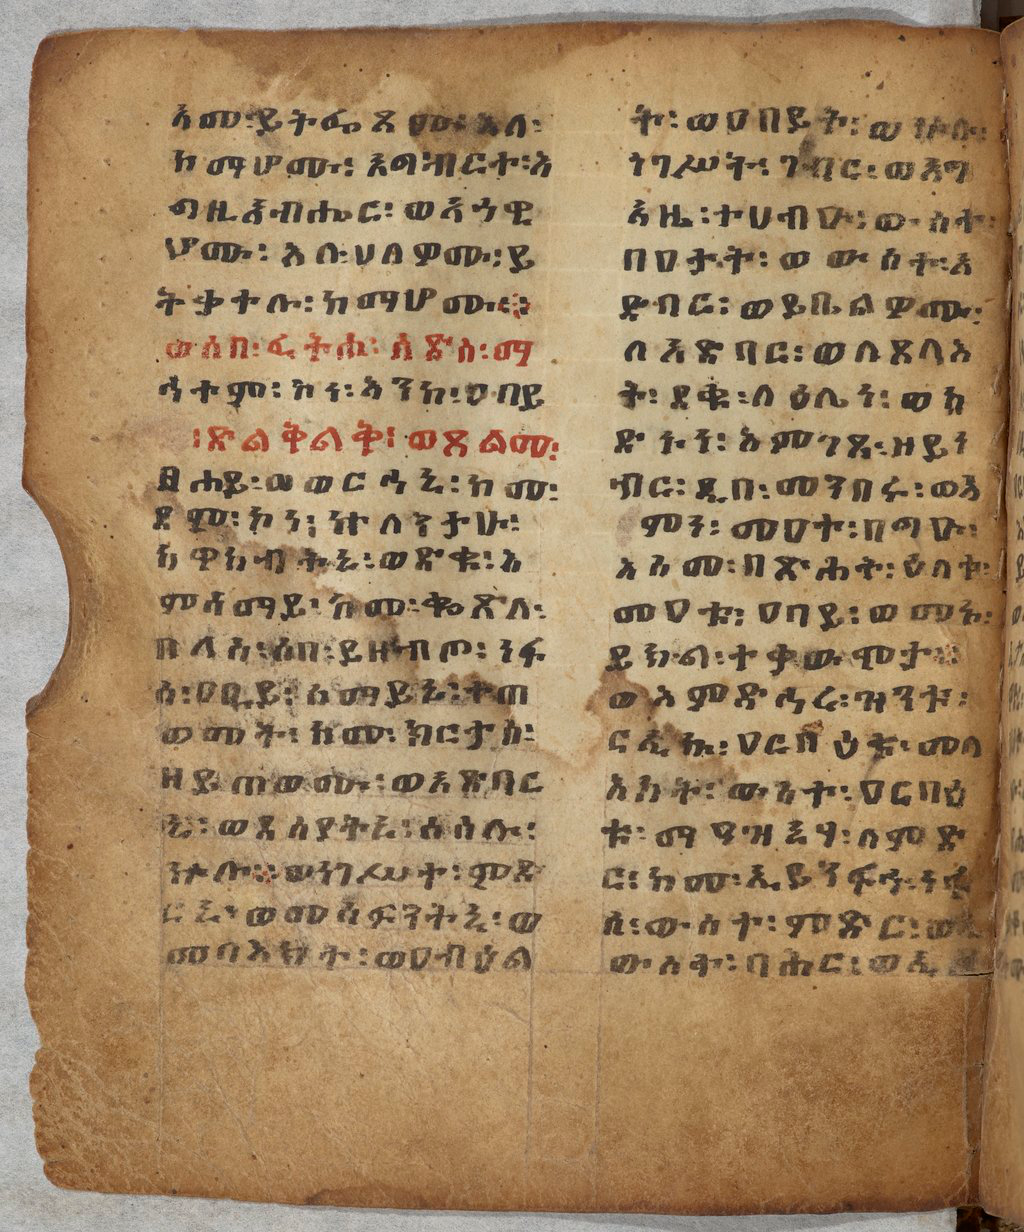 እሙ፡ይትፌጸሙ፡እለ፡
ከማሆሙ፡ አግብርተ፡እ
ግዚአብሔር፡ ወአኀዊ
ሆሙ፡ እሉ፡ሀለዎሙ፡ይ
ትቃተሉ፡ ከማሆሙ፨
ወሰበ፡ፈትሐ፡ ሳድሰ፡ማ
ኅተም፡ ኮነ፡ እንከ፡ዐበይ
፡ድልቅልቅ፡ ወጸልሙ፡
ፀሐይ፡ወወርኅኒ፡ ከሙ፡
ደም፡ ኮነ፡ ኵለንታሁ፡
ከዋክብትኒ፡ወድቁ፡እ
ምሰማይ፡ ከመ፡ቈጽለ፡
በለስ፡ሰበ፡ይዘብጦ፡ ነፋ
ስ፡ዐቢይ፡ ሰማይኒ፡ተጠ
ወመት፡ ከመ፡ ክርታስ፡
ዘይጠወሙ፡ወአድባር
ኒ፡ ወደሰያትኒ፡ሰሰሉ፡
ኵሉ፨ወነገሥት፡ምድ
ርኒ፡ ወመሳፍንትኒ፡ወ
መላእክት፡ወዐብዕል
ት፡ወዐበይት፡ወኵሉ፡
ነገሥት፡ ገብር፡ወአግ
እዜ፡ተሀብኡ፡ውስተ፡
በዐታት፡ ወውስተ፡አ
ድባር፡ ወይቤልዎሙ፡
ለአድባር፡ወለጸላእ
ት፡ ደቁ፡ለዕሌነ፡ወክ
ድኑነ፡ እምገጹ፡ዘይነ
ብር፡ ዲበ፡መንበሩ፡ወእ
ምነ፡ መዐተ፡በግዑ፡
እስመ፡በጽሐት፡ዕለተ፡
መዐቱ፡ ዐባይ፡ወመኑ፡
ይክል፡ተቃውሞታ፨
ወእምድኅረ፡ዝንቱ፡
ርኢኩ፡ ዐርበዕቱ፡መላ
እክት፡ ውእተ፡ዐርበዕ
ቱ፡ ማዓዝኒሃ፡ለምድ
ር፡ ከሙ፡ኢይንፍኁ፡ነፋ
ሰ፡ውስተ፡ ምድር፡ወኢ
ውስተ፡ባሕር፡ወዲበ